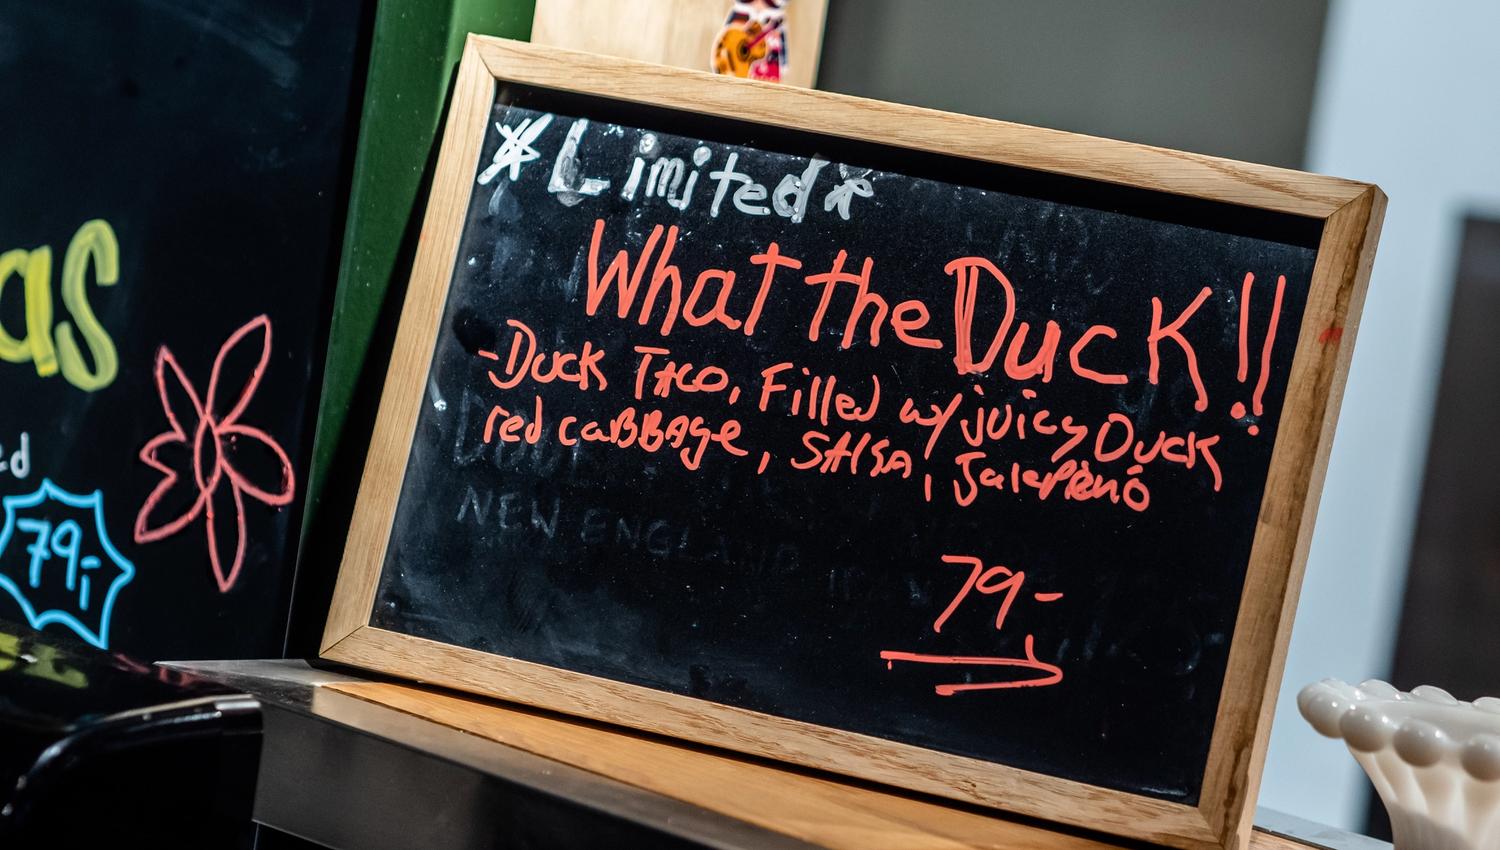 *Limited*
What the Duck!!
-Duck Taco, Filled w/ juicy Duck
red cabbage, Salsa, Jalepeño
79-
as
ed
79,-
NEW ENGLAND